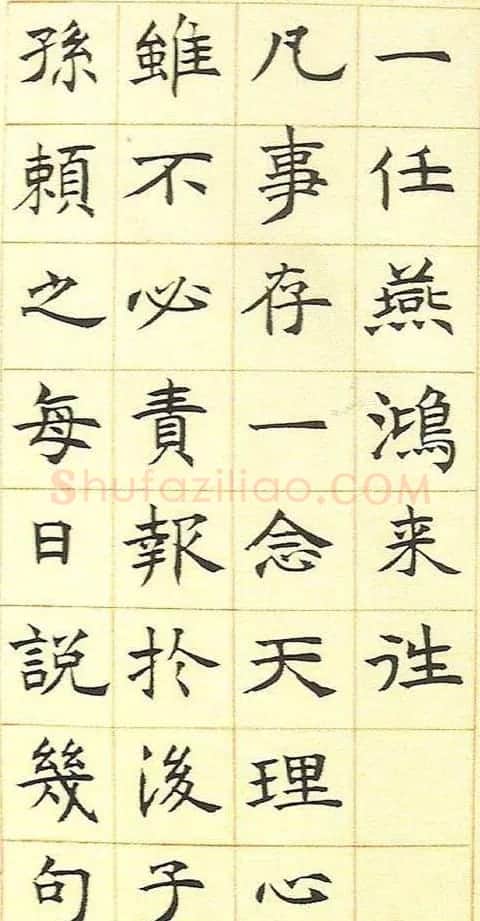 一任燕鴻来往
凡事存一念天理心
雖不必責報於後子
孫頼之每日説幾句
Shufaziliao.COM